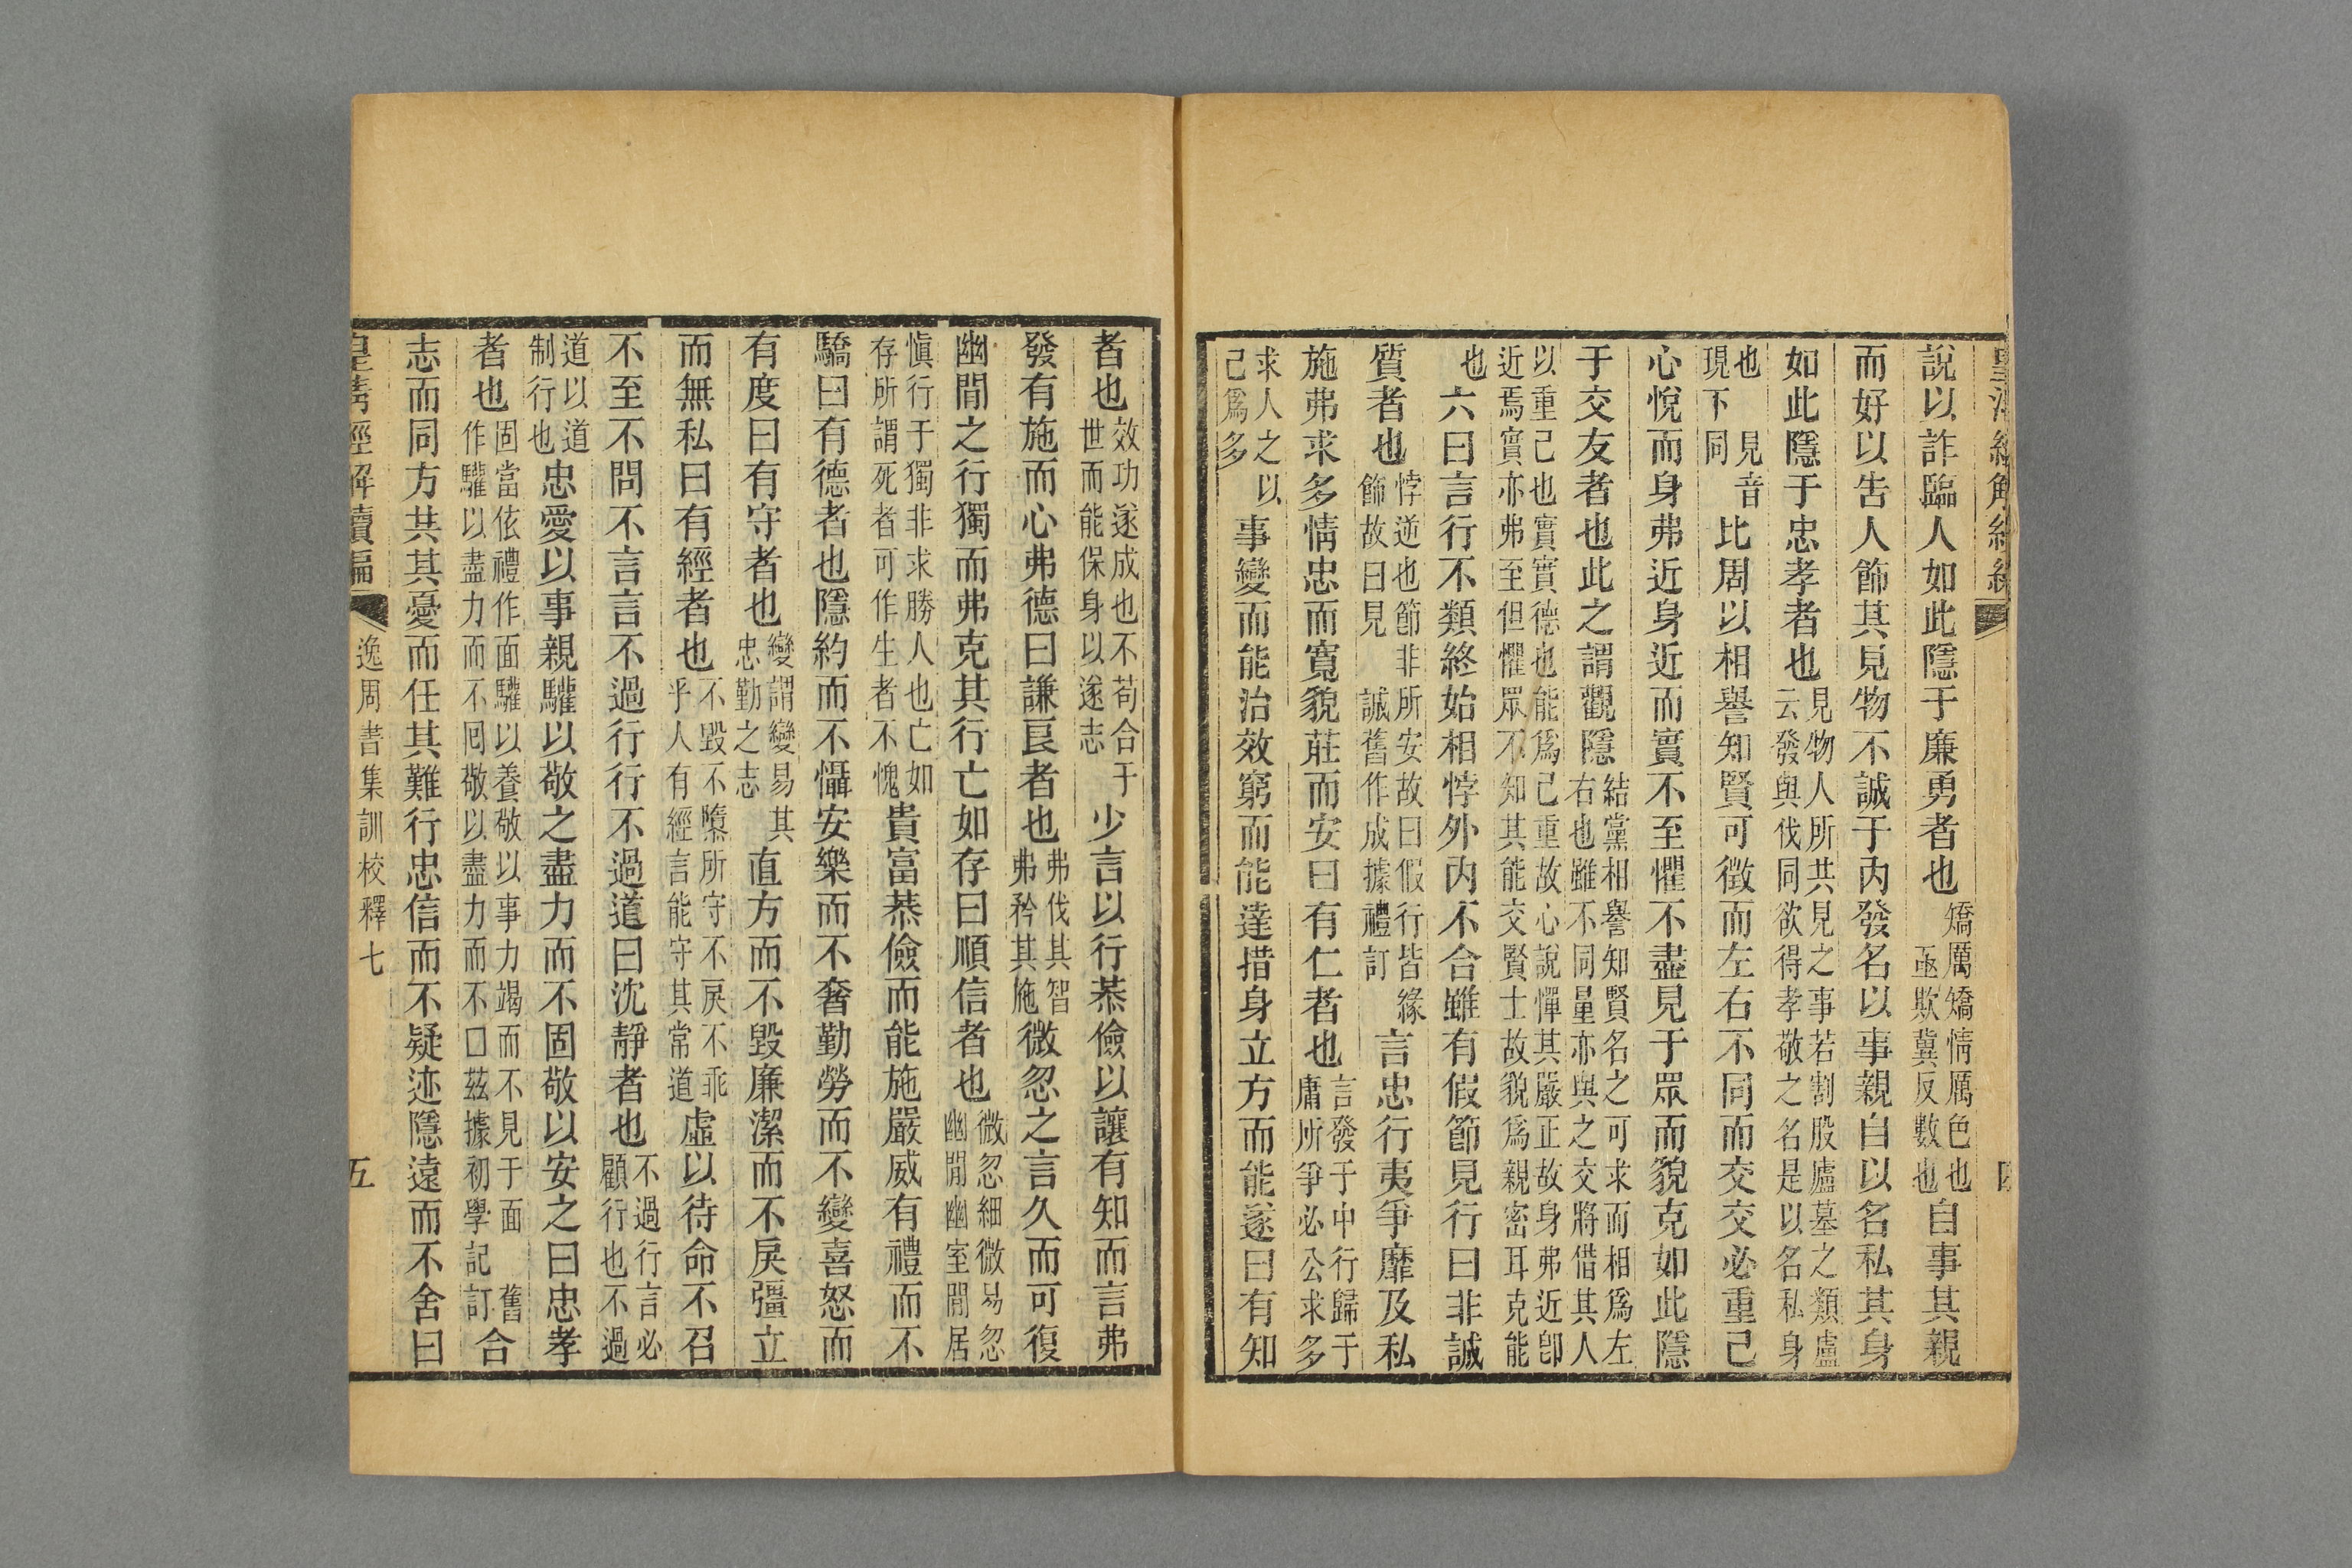 說以詐臨人如此隱于廉勇者也矯厲矯情厲色也亟欺冀反數也自事其親
而好以告人飾其見物不誠于內發名以事親自以名私其身
如此隱于忠孝者也見物人所共見之事若割股廬墓之類廬云發與伐同欲得孝敬之名是以名私身
也現下同見音比周以相譽知賢可徵而左右不同而交交必重己
心悅而身弗近身近而實不至懼不盡見于眾而貌克如此隱
于交友者也此之謂觀隱結黨相譽知賢名之可求而相爲左右也雖不同量亦與之交將借其人
以重己也實實德也能爲己重故心說憚其嚴正故身弗近卽近焉實亦弗至但懼眾不知其能交賢士故貌爲親密耳克能
也六曰言行不類終始相悖外內不合雖有假節見行曰非誠
質者也悖逆也節非所安故曰假行皆緣飾故曰見誠舊作成據禮訂言忠行夷爭靡及私
施弗求多情忠而寬貌莊而安曰有仁者也言發于中行歸于庸所爭必公求多
求人之以己爲多事變而能治效窮而能達措身立方而能遂曰有知
者也效功遂成也不苟合于世而能保身以遂志少言以行恭儉以讓有知而言弗
發有施而心弗德曰謙良者也弗伐其智弗矜其施微忽之言久而可復
幽閒之行獨而弗克其行亡如存曰順信者也微忽細微易忽幽閒幽室閒居
愼行于獨非求勝人也亡如存所謂死者可作生者不愧貴富恭儉而能施嚴威有禮而不
驕曰有德者也隱約而不懾安樂而不奢勤勞而不變喜怒而
有度曰有守者也變謂變易其忠勤之志直方而不毀廉潔而不戾彊立
而無私曰有經者也不毀不隳所守不戾不乖乎人有經言能守其常道虛以待命不召
不至不問不言言不過行行不過道曰沈靜者也不過行言必顧行也不過
道以道制行也忠愛以事親驩以敬之盡力而不固敬以安之曰忠孝
者也固當依禮作面驩以養敬以事力竭而不見于面舊作驩以盡力而不囘敬以盡力而不口茲據初學記訂合
志而同方共其憂而任其難行忠信而不疑迹隱遠而不舍曰
皇清經解續編 逸周書集訓校釋七 五